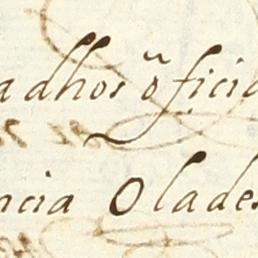 adhos oficia
ncia Olades